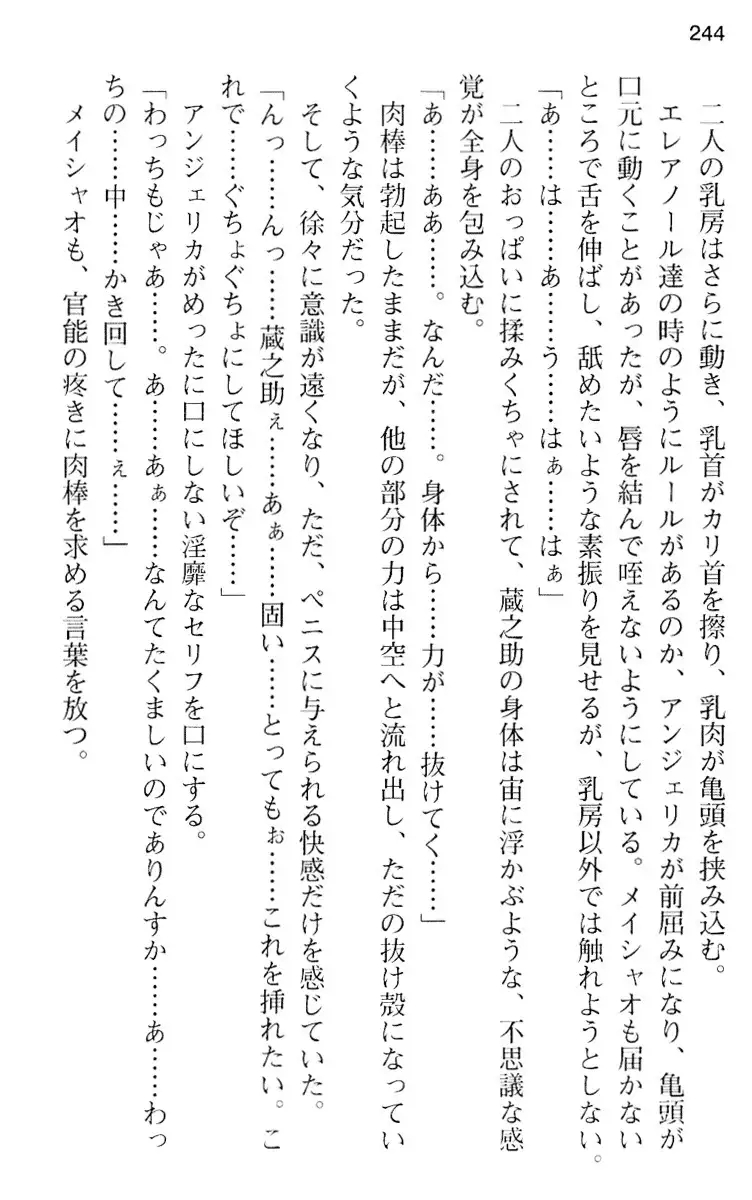 244
二人の乳房はさらに動き、乳首がカリ首を擦り、乳肉が亀頭を挟み込む。
エレアノール達の時のようにルールがあるのか、アンジェリカが前屈みになり、亀頭が
口元に動くことがあったが、唇を結んで咥えないようにしている。メイシャオも届かない
ところで舌を伸ばし、舐めたいような素振りを見せるが、乳房以外では触れようとしない。
「あ……は……あ……う……はぁ……はぁ」
二人のおっぱいに揉みくちゃにされて、蔵之助の身体は宙に浮かぶような、不思議な感
覚が全身を包み込む。
「あ……ああ……。なんだ……。身体から……力が……抜けてく……」
肉棒は勃起したままだが、他の部分の力は中空へと流れ出し、ただの抜け殻になってい
くような気分だった。
そして、徐々に意識が遠くなり、ただ、ペニスに与えられる快感だけを感じていた。
「んっ……んっ……蔵之助ぇ……あぁ……固い……とってもぉ……これを挿れたい。こ
れで……ぐちょぐちょにしてほしいぞ……」
アンジェリカがめったに口にしない淫靡なセリフを口にする。
「わっちもじゃあ……。あ……あぁ……なんてたくましいのでありんすか……あ……わっ
ちの……中……かき回して……ぇ……」
メイシャオも、官能の疼きに肉棒を求める言葉を放つ。